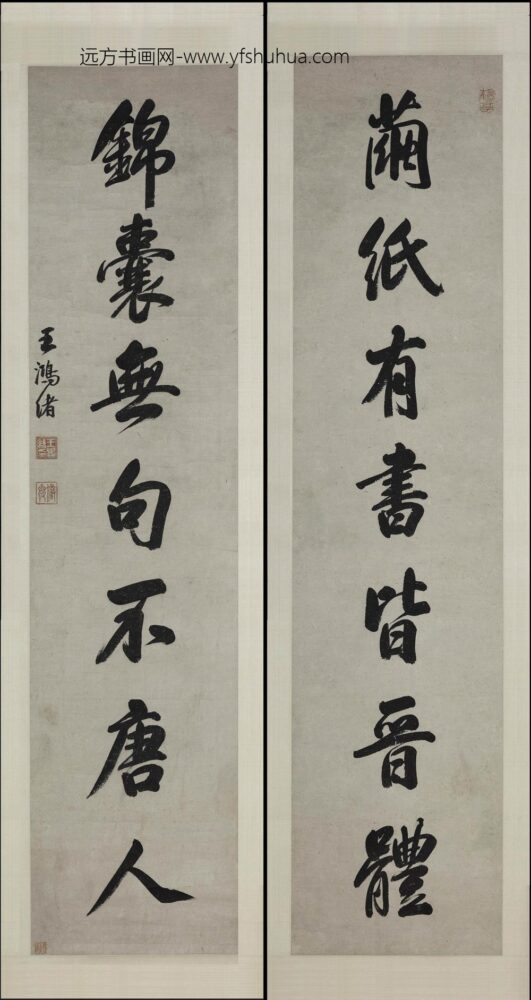 远方书画网-www.yfshuhua.com
蠒紙有書皆晉體
錦囊無句不唐人
王鴻緒